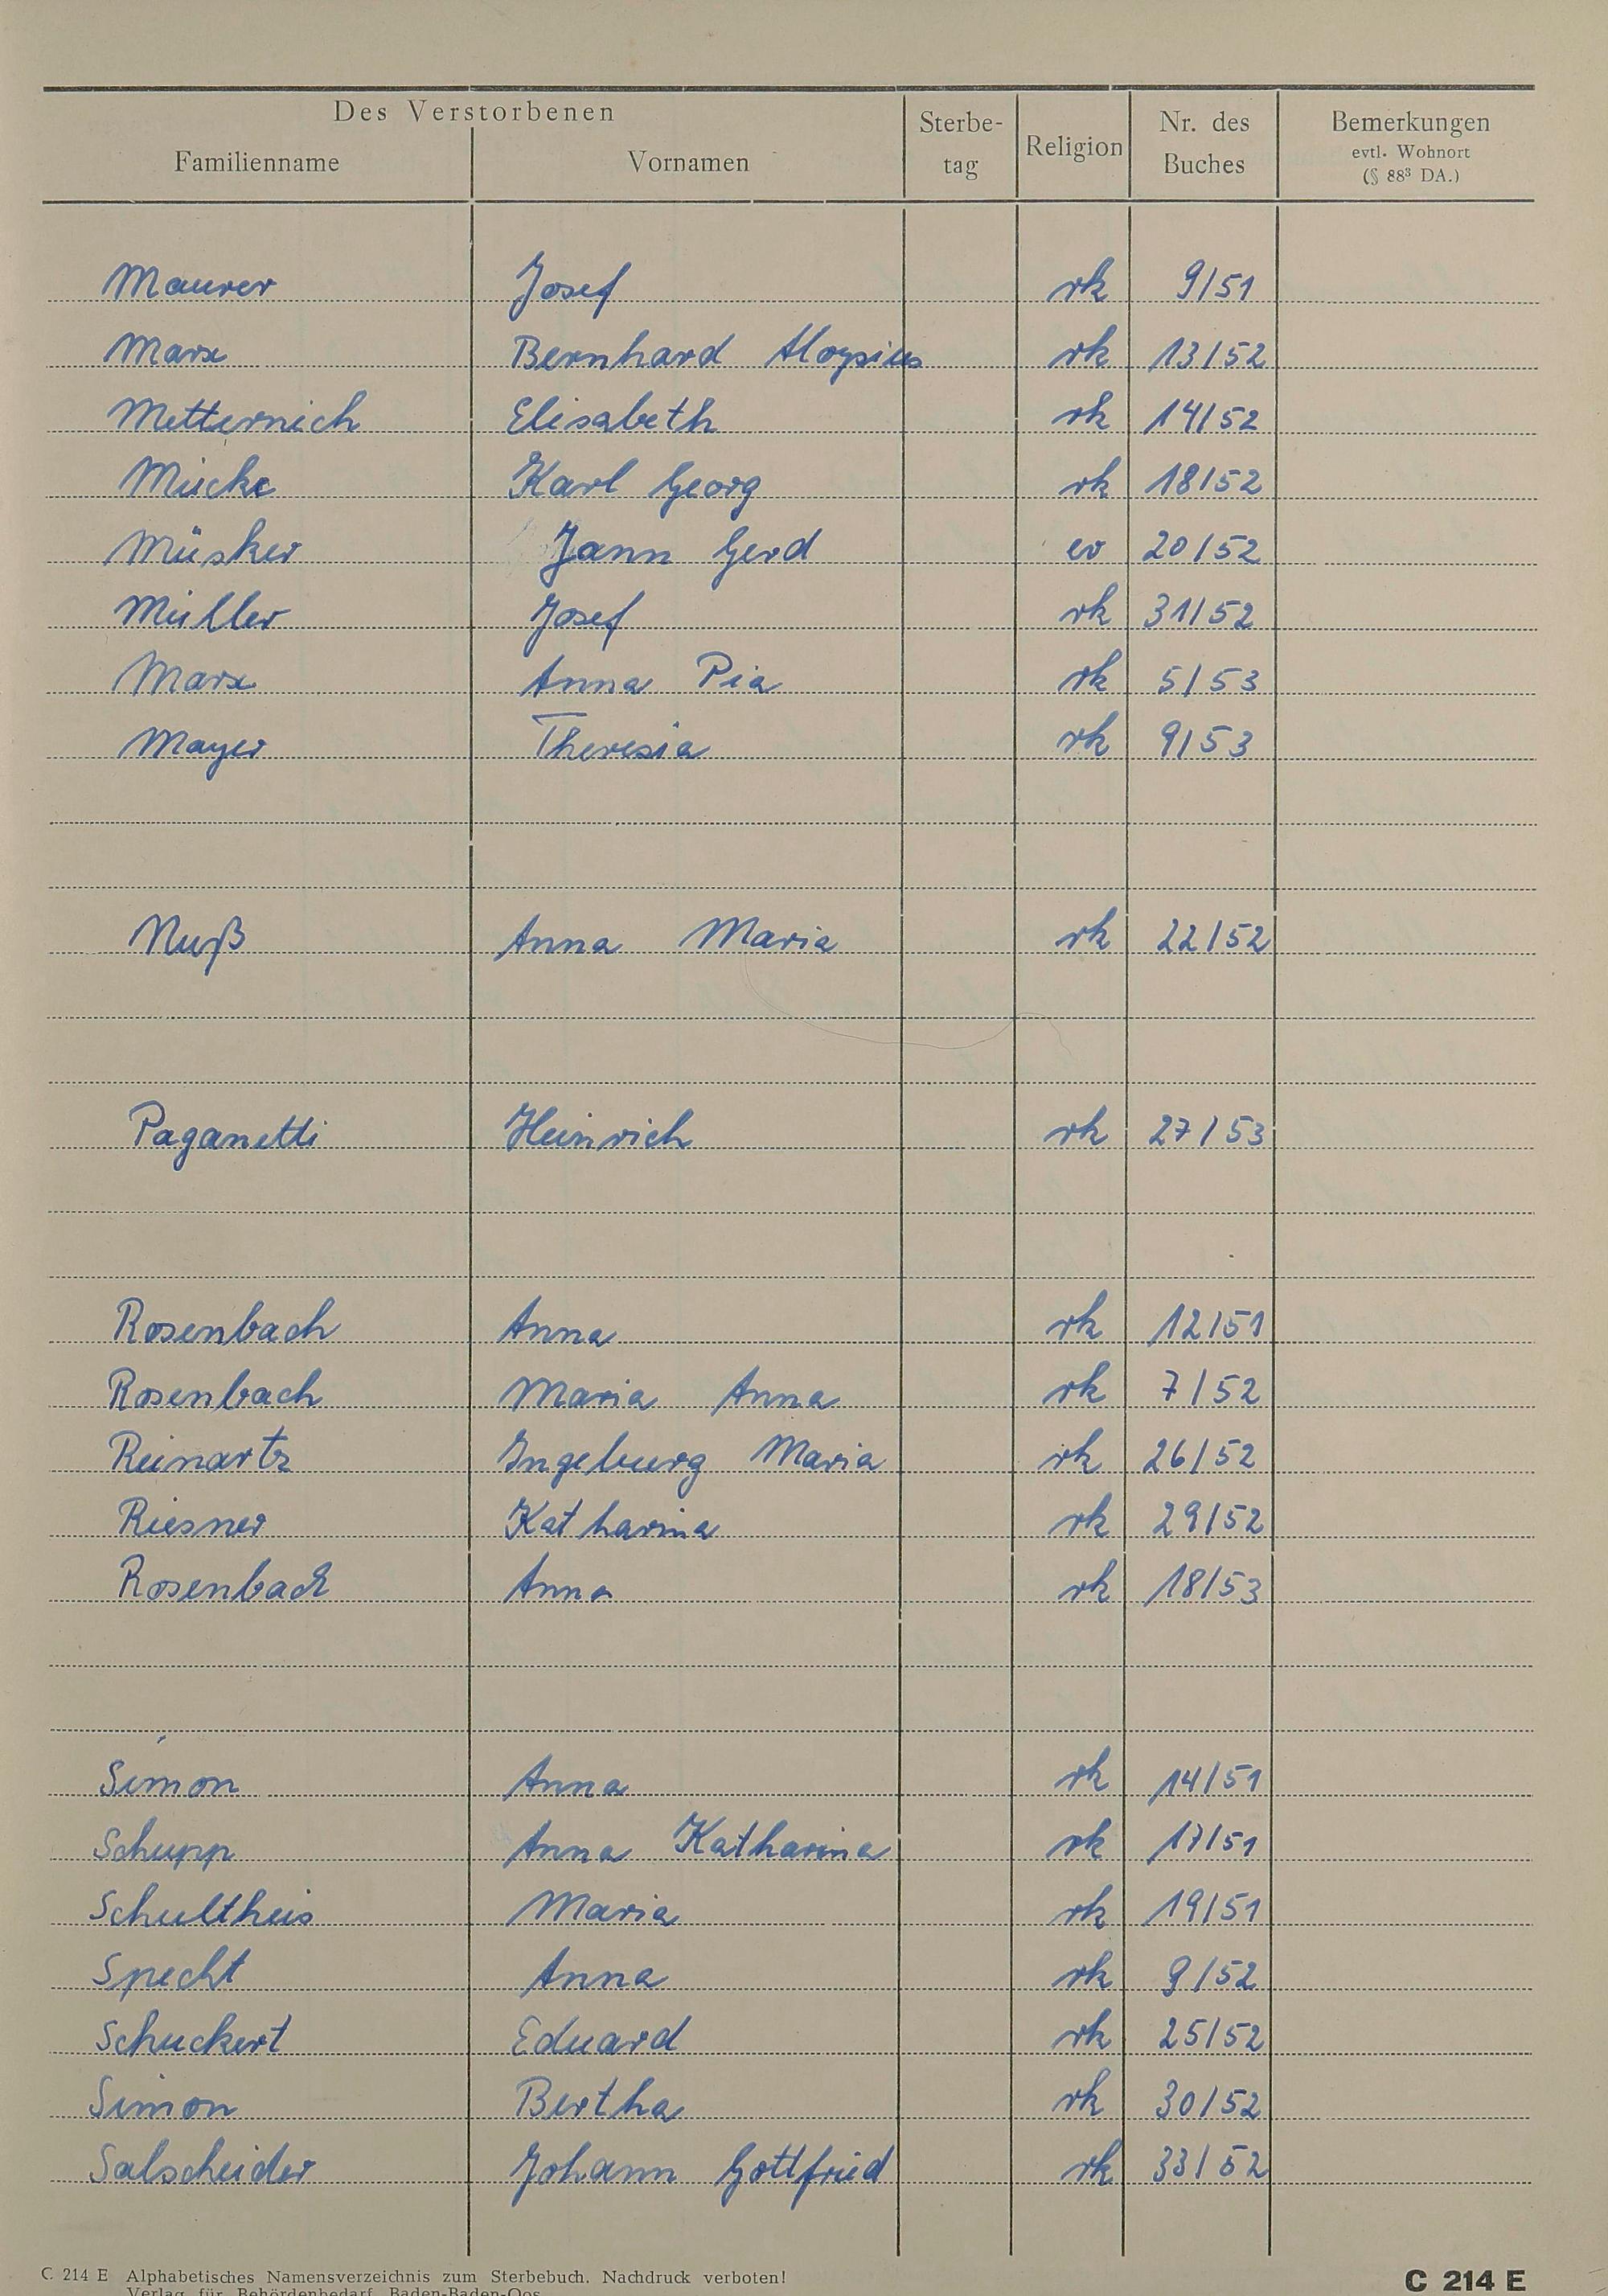 Des Verstorbenen
Familienname Vornamen Sterbe-tag Religion Nr. des Buches Bemerkungen evtl. Wohnort (§ 88³ DA.)
Maurer Josef rk 9/51
Marx Bernhard Aloysius rk 13/52
Metternich Elisabeth rk 14/52
Mücke Karl Georg rk 18/52
Müsker Jann Gerd ev 20/52
Müller Josef rk 31/52
Marx Anna Pia rk 5/53
Mayer Theresia rk 9/53
Nuß Anna Maria rk 22/52
Paganetti Heinrich rk 27/53
Rosenbach Anna rk 12/51
Rosenbach Maria Anna rk 7/52
Reinartz Ingeburg Maria rk 26/52
Riesner Katharina rk 29/52
Rosenbach Anna rk 18/53
Simon Anna rk 14/51
Schupp Anna Katharina rk 17/51
Schultheis Maria rk 19/51
Specht Anna rk 9/52
Schuckert Eduard rk 25/52
Simon Bertha rk 30/52
Salscheider Johann Gottfried rk 33/52
C 214 E Alphabetisches Namensverzeichnis zum Sterbebuch. Nachdruck verboten!
Verlag für Behördenbedarf, Baden-Baden-Oos
C 214 E